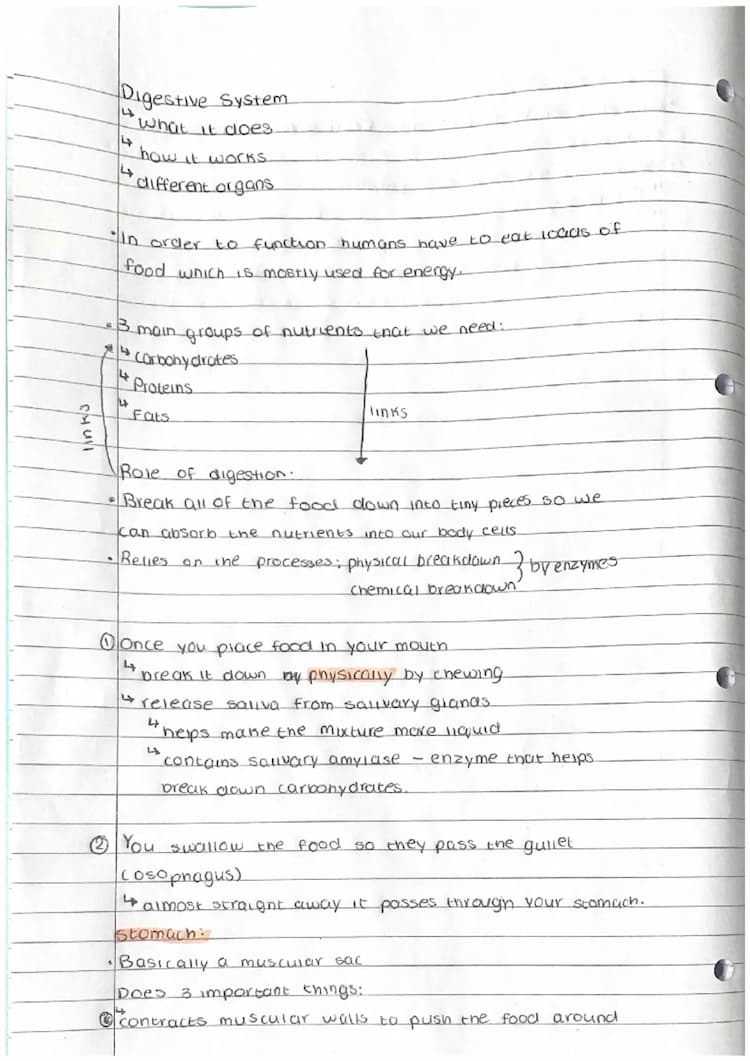 Digestive System
↳ what it does
↳ how it works
↳ different organs
• In order to function humans have to eat loads of
food which is mostly used for energy.
• 3 main groups of nutrients that we need:
↳ carbohydrates
↳ Proteins
↳ Fats
links
links
Role of digestion:
• Break all of the food down into tiny pieces so we
can absorb the nutrients into our body cells
• Relies on the processes; physical breakdown } by enzymes
chemical breakdown
① Once you place food in your mouth
↳ break it down by physically by chewing
↳ release saliva from salivary glands
↳ helps make the mixture more liquid
↳ contains salivary amylase – enzyme that helps
break down carbohydrates.
② You swallow the food so they pass the gullet
(osophagus)
↳ almost straight away it passes through your stomach.
stomach:
• Basically a muscular sac
Does 3 important things:
↳ contracts muscular walls to push the food around